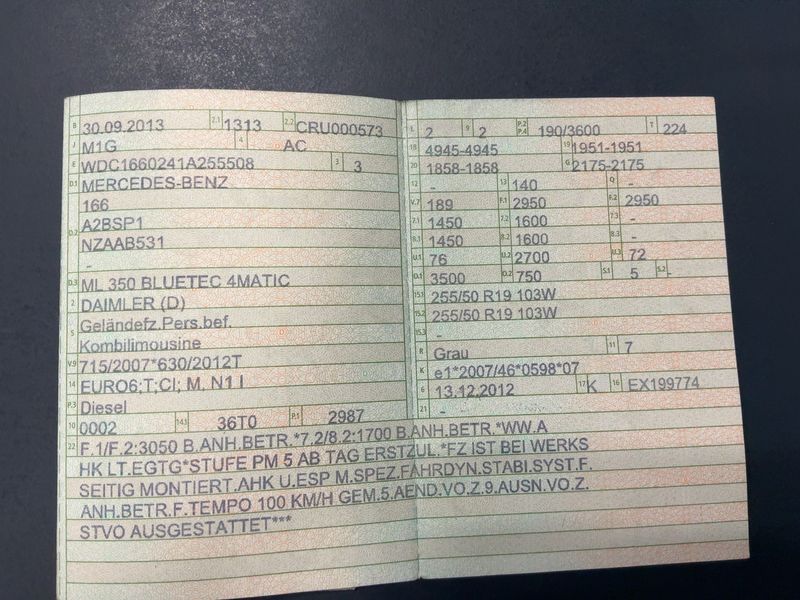 B 30.09.2013 2.1 1313 2.2 CRU000573
J M1G 4 AC
E WDC1660241A255508 3 3
D.1 MERCEDES-BENZ
166
D.2 A2BSP1
NZAAB531
-
D.3 ML 350 BLUETEC 4MATIC
2 DAIMLER (D)
5 Geländefz.Pers.bef.
Kombilimousine
V.9 715/2007*630/2012T
14 EURO6;T;CI; M, N1 I
P.3 Diesel
10 0002 14.1 36T0 P.1 2987
L 2 9 2 P.2 P.4 190/3600 T 224
18 4945-4945 19 1951-1951
20 1858-1858 G 2175-2175
12 - 13 140 Q -
V.7 189 F.1 2950 F.2 2950
7.1 1450 7.2 1600 7.3 -
8.1 1450 8.2 1600 8.3 -
U.1 76 U.2 2700 U.3 72
O.1 3500 O.2 750 S.1 5 S.2 -
15.1 255/50 R19 103W
15.2 255/50 R19 103W
15.3 -
R Grau 11 7
K e1*2007/46*0598*07
6 13.12.2012 17 K 16 EX199774
21 -
22 F.1/F.2:3050 B.ANH.BETR.*7.2/8.2:1700 B.ANH.BETR.*WW.A
HK LT.EGTG*STUFE PM 5 AB TAG ERSTZUL.*FZ IST BEI WERKS
SEITIG MONTIERT.AHK U.ESP M.SPEZ.FAHRDYN.STABI.SYST.F.
ANH.BETR.F.TEMPO 100 KM/H GEM.5.AEND.VO.Z.9.AUSN.VO.Z.
STVO AUSGESTATTET***